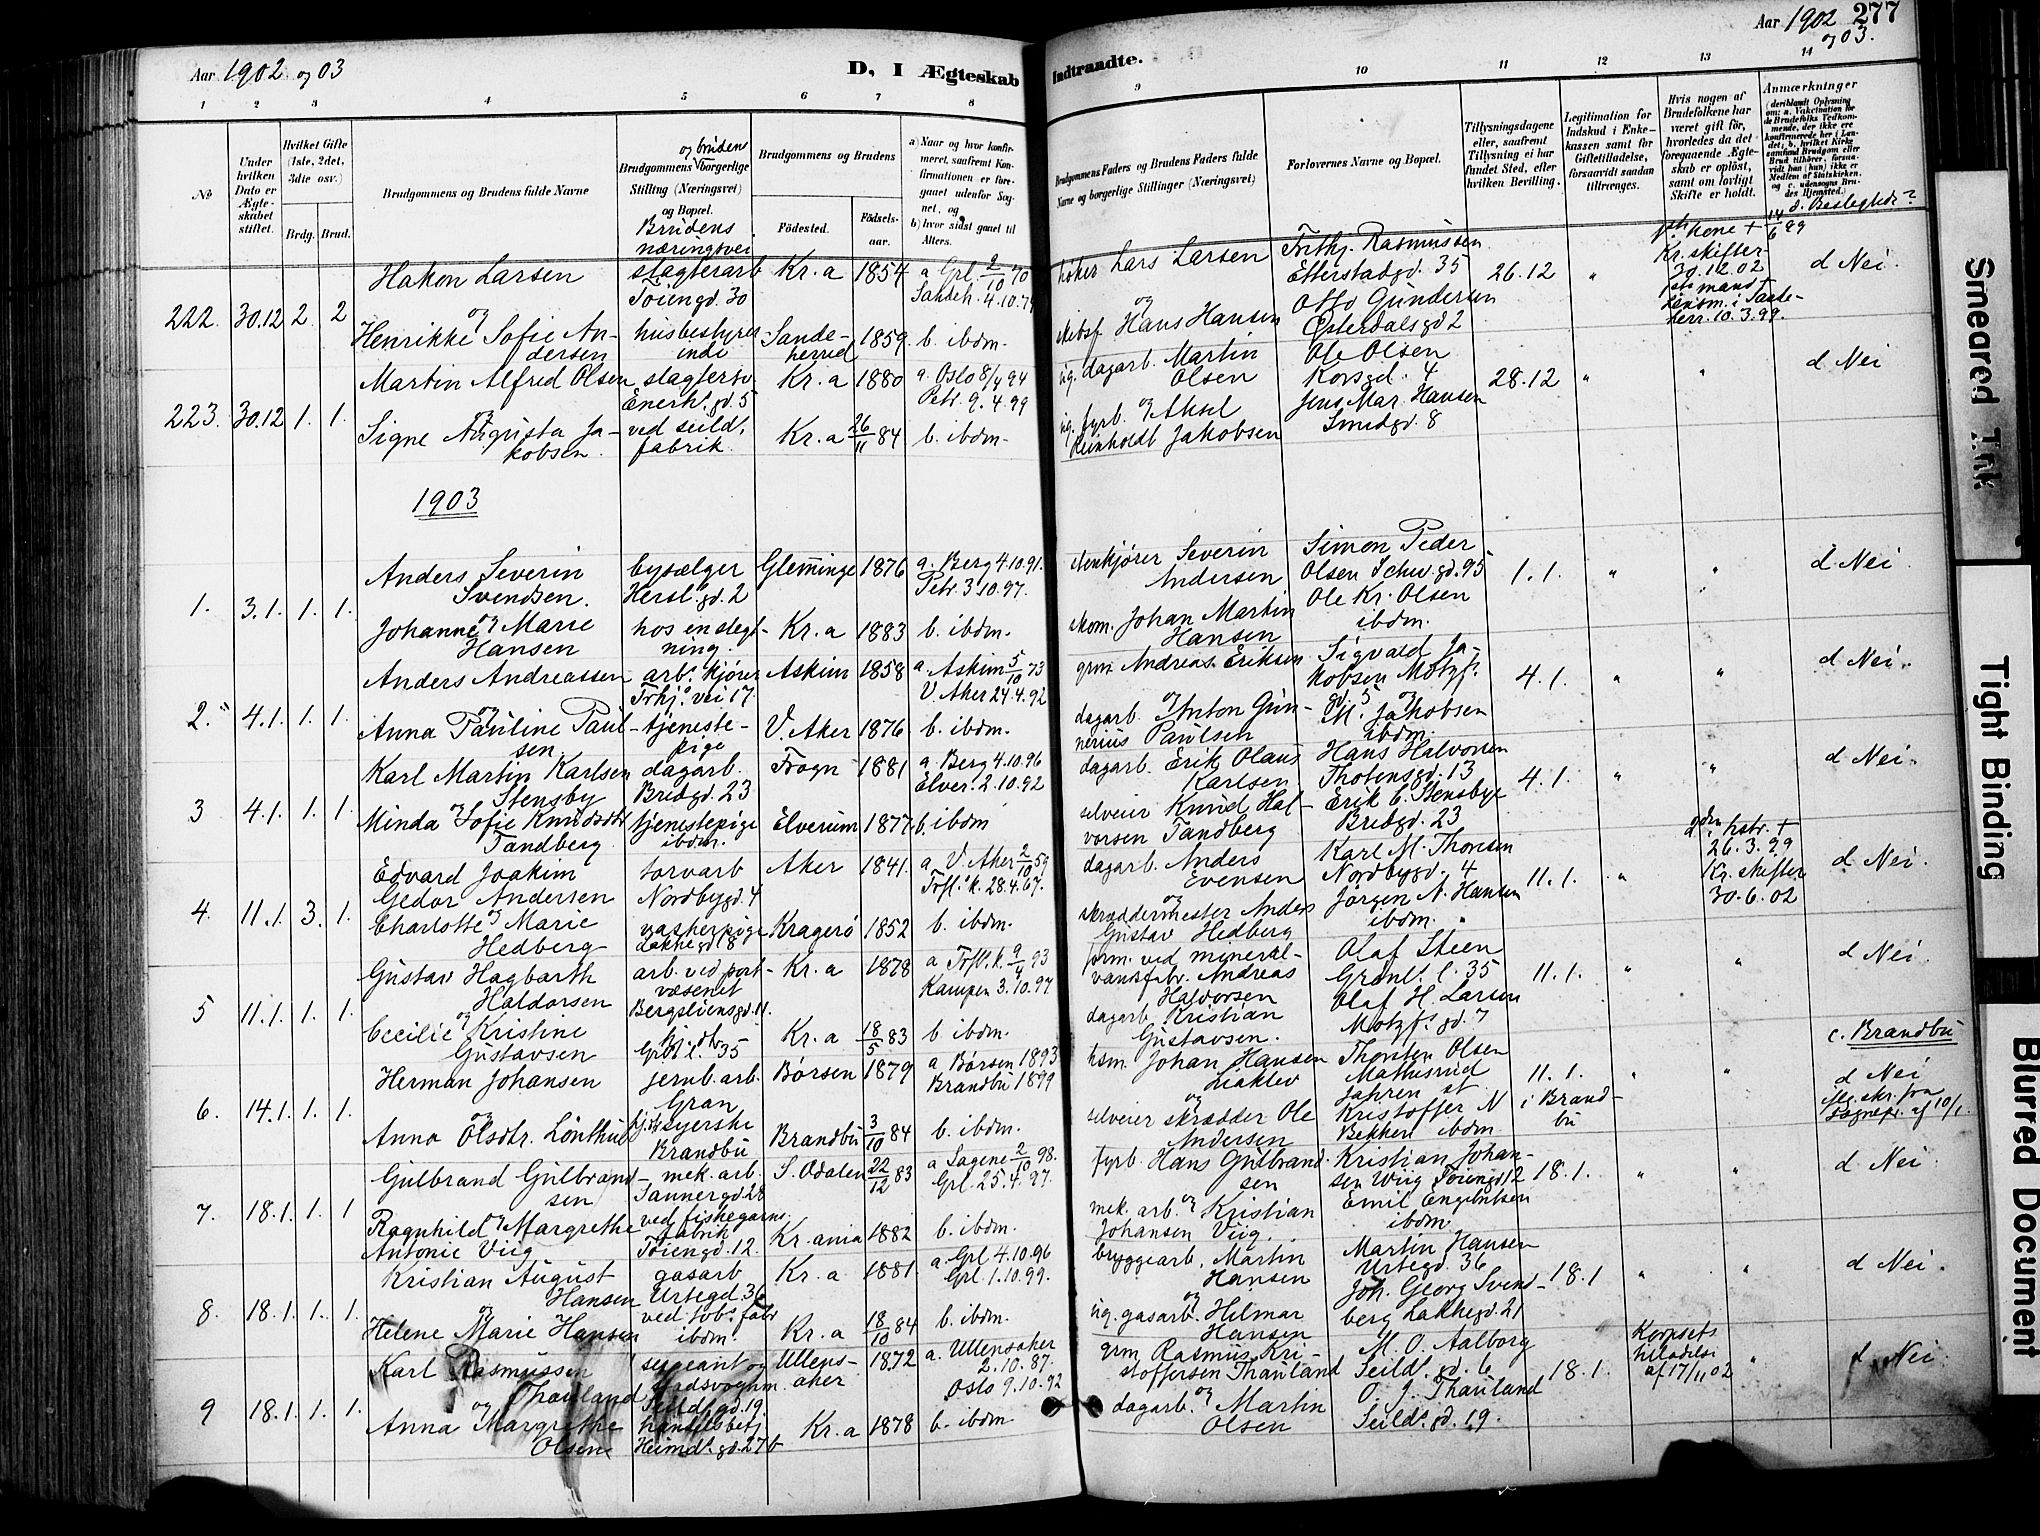 Aar 1902 og 03
D, I Ægteskab
Indtraadte.
Aar 1902 277
og 03.
1 2 3 4 5 6 7 8 9 10 11 12 13 14
№
Under hvilken Dato er Ægteskabet stiftet.
Hvilket Gifte (1ste, 2det, 3die osv.)
Brdg. Brud.
Brudgommens og Brudens fulde Navne
og bruden
Brudgommens borgerlige Stilling (Næringsvei) og Bopæl.
Brudens næringsvei
Brudgommens og Brudens
Fødested.
Fødsels-aar.
a) Naar og hvor konfirmeret, saafremt Konfirmationen er foregaaet udenfor Sognet, og
b) hvor sidst gaaet til Alters.
Brudgommens Faders og Brudens Faders fulde Navne og borgerlige Stillinger (Næringsvei)
Forlovernes Navne og Bopæl.
Tillysningsdagene eller, saafremt Tillysning ei har fundet Sted, efter hvilken Bevilling.
Legitimation for Indskud i Enkekassen samt for Giftetilladelse, forsaavidt saadan tiltrænges.
Hvis nogen af Brudefolkene har været gift før, hvorledes da det foregaaende Ægteskab er opløst, samt om lovligt Skifte er holdt.
Anmærkninger
d. Beslægtede?
222. 30.12 2 2
Hakon Larsen slagterarb Kr.a 1854 a Grl. 2/10 70
Tøiengd. 30 Sandeh. 4.10.74
og
Henrikke Sofie Andersen husbestyrerinde Sandeherred 1859. b. ibdm.
høker Lars Larsen
og
skibsf Hans Hansen
Frithj. Rasmussen
Etterstadgd. 35
Otto Gundersen
Østerdalsgd 2
26.12 "
hone + 14/6 99
Kr. skifter
30.12.02
10.3.99.
d Nei.
223. 30.12 1. 1.
Martin Alfred Olsen slagtersv. Kr.a 1880 a. Oslo 8/4 94
Enerh. gd. 5 Petr. 9.4.99
og
Signe Augusta Jakobsen ved seild. fabrik Kr.a 26/11 84 b. ibdm.
ug. dagarb. Martin Olsen
og
ug. fyrb. Aksel Reinholdt Jakobsen
Ole Olsen
Korsgd. 4
Jens Mar. Hansen
Smedgd. 8
28.12 " "
d Nei
1903
1. 3.1. 1. 1.
Anders Severin Svendsen. bysælger Glemminge 1876 a. Berg 4.10.91.
Hersl. gd. 2 Petr. 3.10.97.
og
Johanne Marie Hansen hos en slegtning. Kr.a 1883 b. ibdm.
stenkjører Severin Andersen
skom. Johan Martin Hansen
Simon Peder Olsen Schw.gd. 95
Ole Kr. Olsen
ibdm.
1.1. " "
d. Nei.
2. 4.1. 1. 1.
Anders Andreassen arb. kjører Askim 1858 a. Askim 5/10 73
Trhj. vei 17. V. Aker 24.4.92
og
Anna Pauline Paulsen. tjenestepige V. Aker 1876 b. ibdm.
grm. Andreas Eriksen
og
dagarb. Anton Gunnerius Paulsen
Sigvald Jakobsen Motzf. gd. 5 og
M. Jakobsen
ibdm.
4.1. " "
d Nei.
3 4.1. 1. 1.
Karl Martin Karlsen Stensby dagarb. Frogn 1881 a. Berg 4.10.96
Bredgd. 23 Elver. 2.10.92
og
Minda Sofie Knudsdtr Tandberg tjenestepige ibdm. Elverum 1877 b. ibdm
dagarb. Erik Olaus Karlsen
selveier Knud Halvorsen Tandberg
Hans Halvorsen
Thotensgd. 13
Erik C. Stensbye
Bredgd. 23
4.1. " "
d Nei.
4. 11.1. 3. 1.
Edvard Joakim Gedor Andersen torvarb Aker 1841. a. V. Aker 2/10 59
Nordbygd. 4 Trfl. k. 28.4.67.
og
Charlotte Marie Hedberg vasherpige Kragerø 1852 b. ibdm.
Lakkegd 18
dagarb. Anders Evensen
og
skræddermester Anders Gustav Hedberg
Karl M. Thoresen
Nordbygd. 4
Jørgen N. Hansen
ibdm.
11.1. "
2den hstr. +
26.3.99
Kr. skifter
30.6.02
d. Nei.
5 11.1. 1. 1.
Gustav Hagbarth Haldorsen arb. ved portvæsenet Kr.a 1878 a Trfl. k. 9/4 93
Bergsliensgd. 11. Kampen 3.10.97
og
Cecilie Kristine Gustavsen Grøl l. 35 Kr.a 18/5 83 b. ibdm.
frm. ved mineralvandsfabr. Andreas Haldorsen
dagarb. Kristian Gustavsen.
Olaf Steen
Grønl. l. 35
Olaf H. Larsen
Motzf. gd. 7
11.1. " "
d. Nei.
6. 14.1. 1. 1.
Herman Johansen jernb. arb. Børsen 1879 a. Børsen 1893
Gran Brandbu 1899
og
Anna Olsdtr. syerske Brandbu 3/10 84 b. ibdm.
Brandbu
hsm. Johan Hansen
og
selveier skrædder Ole Andersen
Thorsten Olsen
Kristoffer N Bekken ibdm.
11.1. i Brandbu " "
c. Brandbu
d Nei
7. 18.1. 1. 1
Gulbrand Gulbrandsen mek. arb. S. Odalen 22/12 83 a Sagene 2/10 98.
Sannergd. 28 Grl. 25.4.97.
og
Ragnhild Margrethe Antonie Viig ved fiskegarnsfabrik Kr.ania 1882 b. ibdm.
Tøiengd. 12.
fyrb. Hans Gulbrandsen
og
mek. arb. Kristian Johansen Viig.
Kristian Johansen Wiig Tøiengd 12
Emil Engebretsen
ibdm
18.1. " "
d Nei.
8. 18.1. 1. 1.
Kristian August Hansen gasarb Kr.a 1881. a. Grl 4.10.96
Urtegd. 36 Grl. 1.10.99.
og
Helene Marie Hansen ved tob. fabr ibdm. Kr.a 18/10 84 b. ibdm.
bryggearb. Martin Hansen
og
ug. gasarb. Hilmar Hansen
Martin Hansen
Urtegd. 36
Joh. Georg Svendberg Lakkegd. 21
18.1 " "
d Nei.
9 18.1. 1. 1.
Karl Rasmussen Thauland sergeant og Ullensaker 1872 a. Ullensaker
2.10.87.
Seild. gd. 19 Oslo 9.10.92
og
Anna Margrethe Olsen Heimd. gd. 27 b Kr.a 1878 b. ibdm
grm Rasmus Kristoffersen Thauland
og
dagarb. Martin Olsen
M. O. Aalborg
Seild. gd. 6
O. J. Thauland
Seild. gd. 19.
18.1.
Korpsets tilladelse af 17/11 02 "
d Nei.
Smeared Ink
Tight Binding
Blurred Document